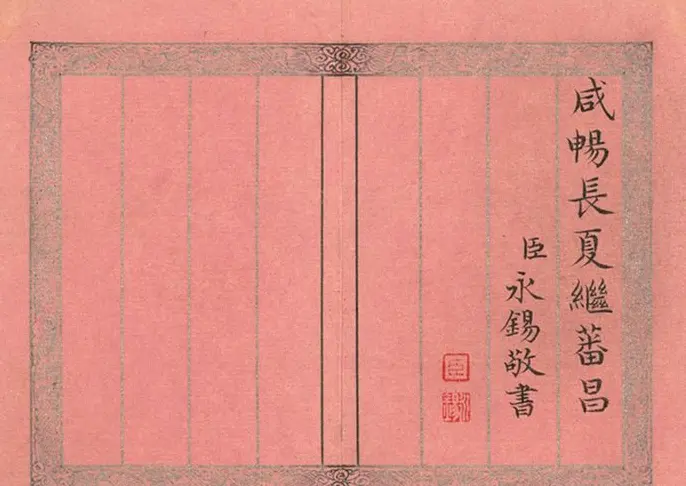 咸暢長夏繼蕃昌
臣永錫敬書
臣
永錫